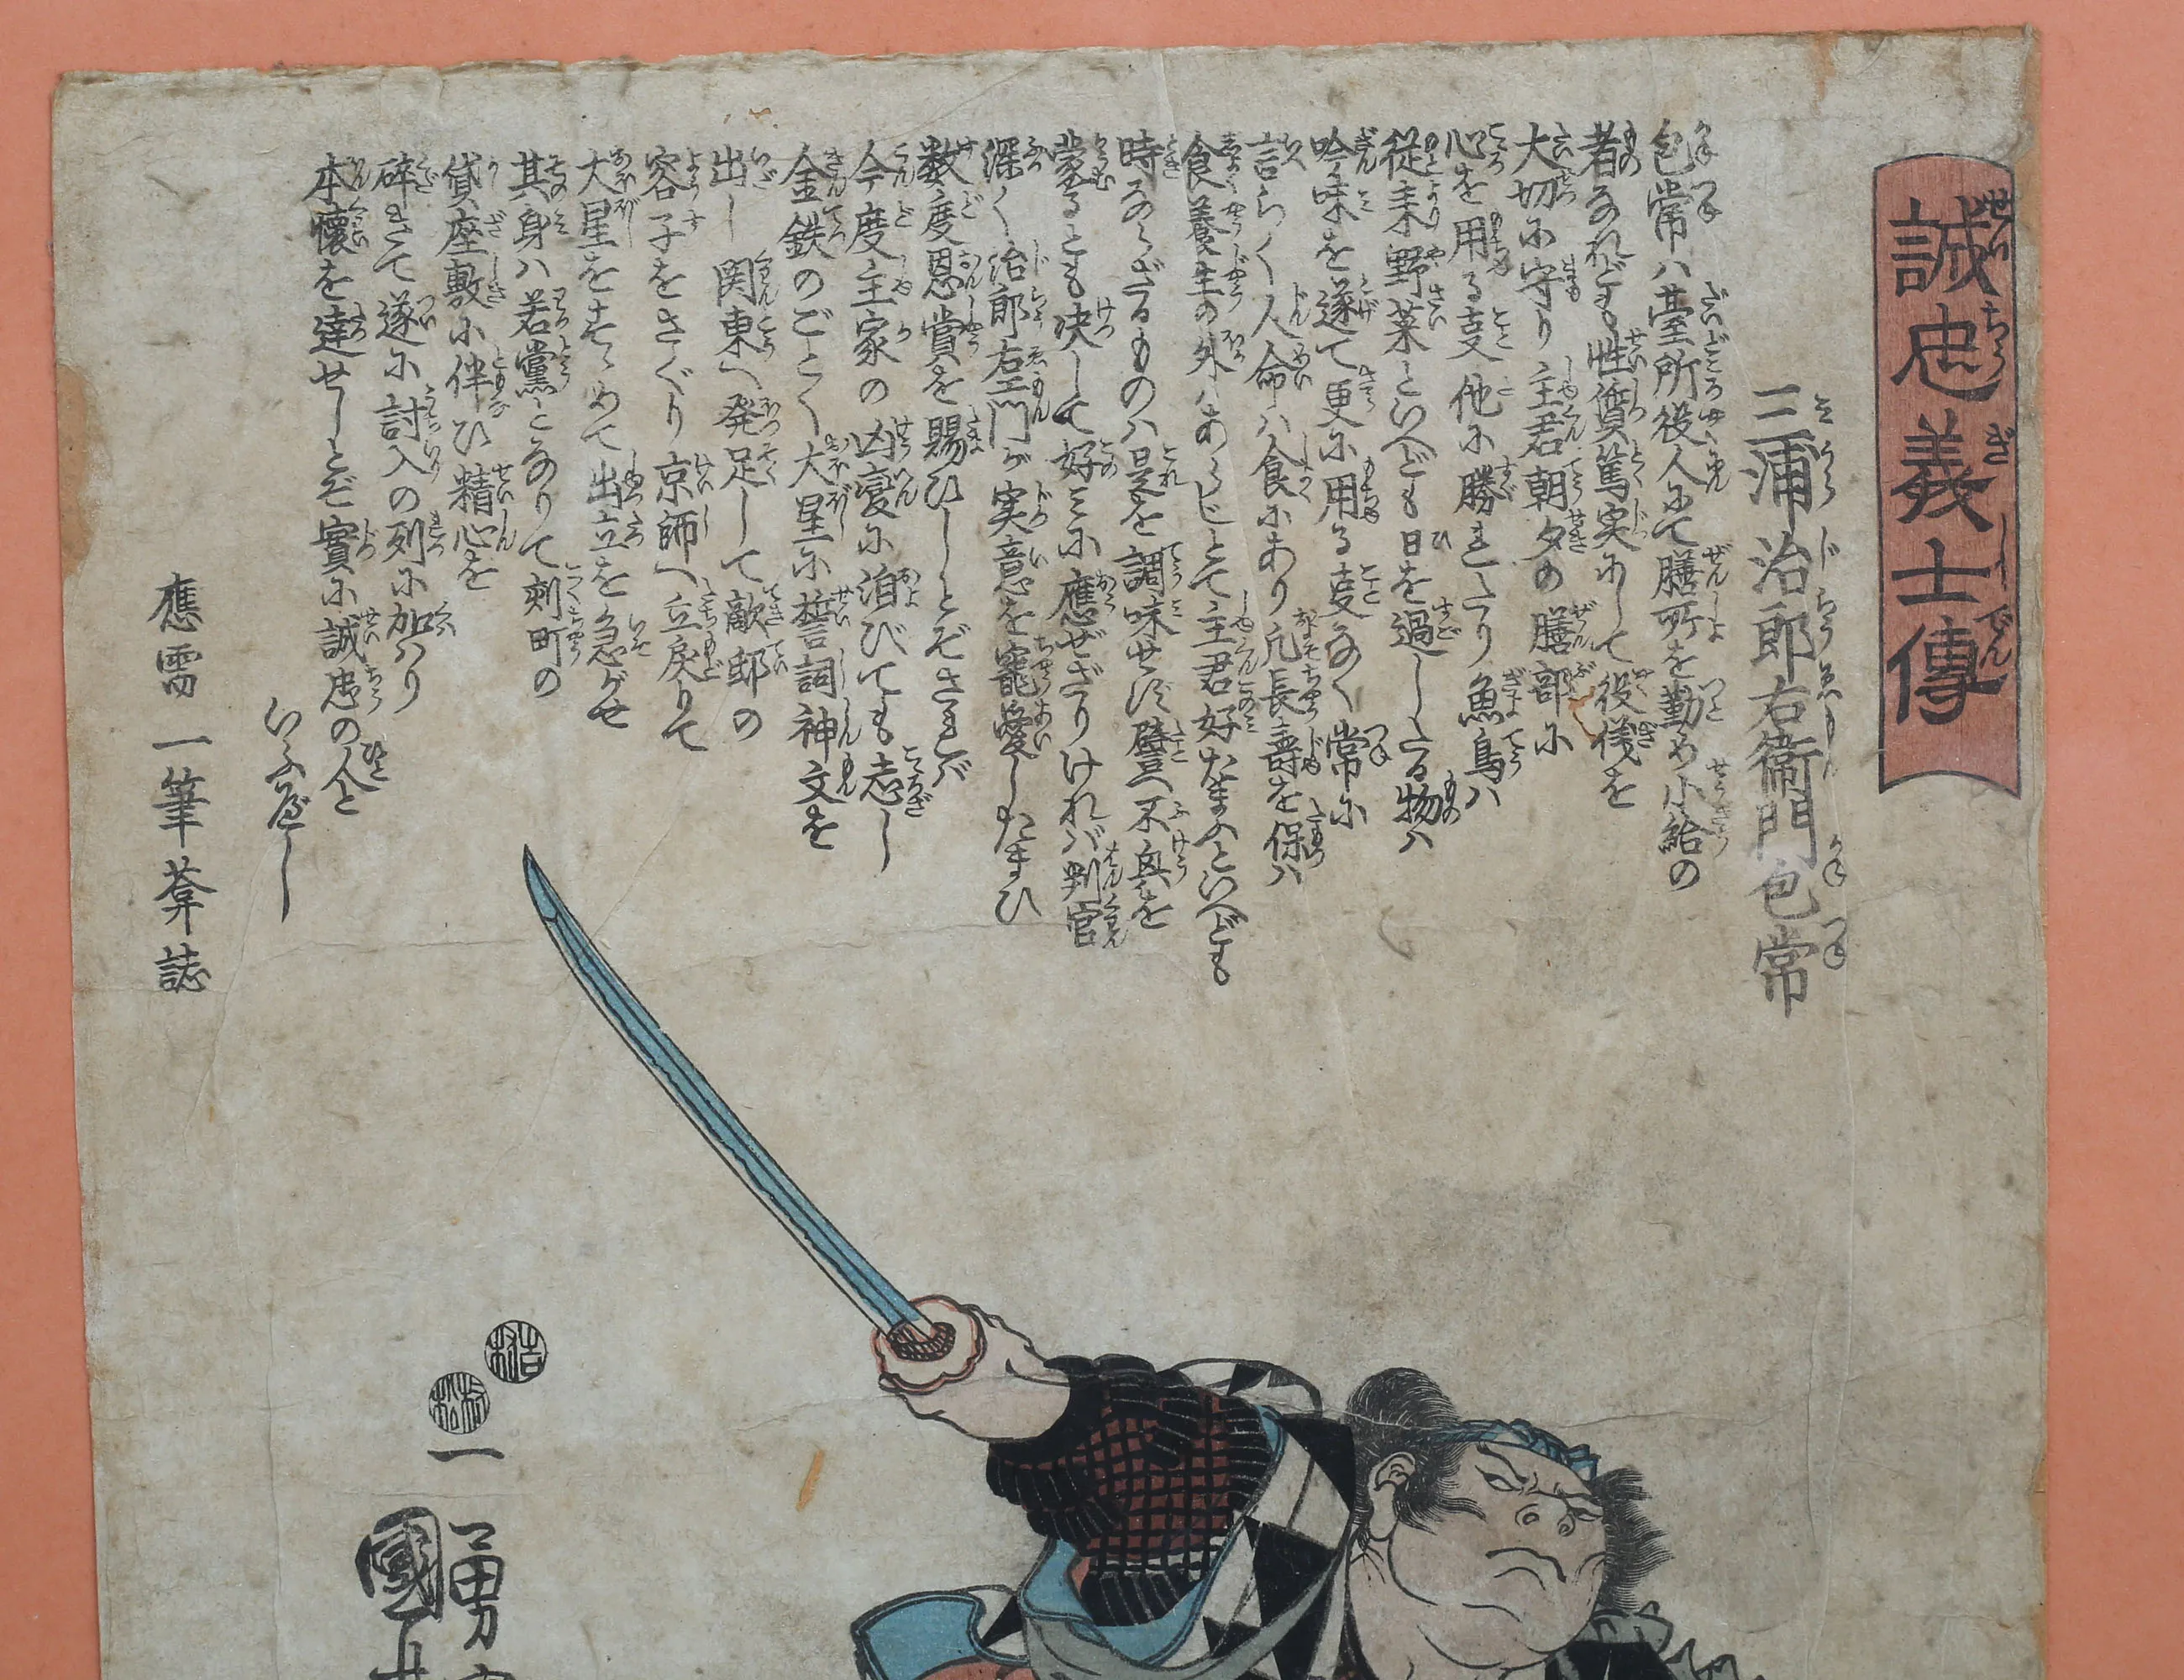 誠忠義士傳
三浦治郎右衛門包常
包常ハ臺所役人にて膳所を勤め小給の
者なれども性質篤実にして役儀を
大切に守り主君朝夕の膳部に
心を用る支他に勝れたり魚鳥ハ
従来野菜といへども日を過したる物ハ
吟味を遂て更に用る支なく常に
言らく人命ハ食にあり凡長壽を保ハ
食養生の外ハあらじとて主君好たまふといへども
時ならざるものハ是を調味せず譬へ不興を
蒙るとも决して好ミに應ぜざりけれバ判官
深く治郎右エ門が実意を寵愛したまひ
数度恩賞を賜ひしとぞされバ
今度主家の凶変に洎びても志し
金鉄のごとく大星に誓詞神文を
出し関東へ発足して敵邸の
容子をさぐり京師へ立戻りて
大星をすゝめて出立を急がせ
其身ハ若黨となりて刻町の
貸座敷に伴ひ精心を
碎きて遂に討入の列に加ハり
本懐を達せしとぞ實に誠忠の人と
いふべし
應需 一筆葊誌
一勇
國